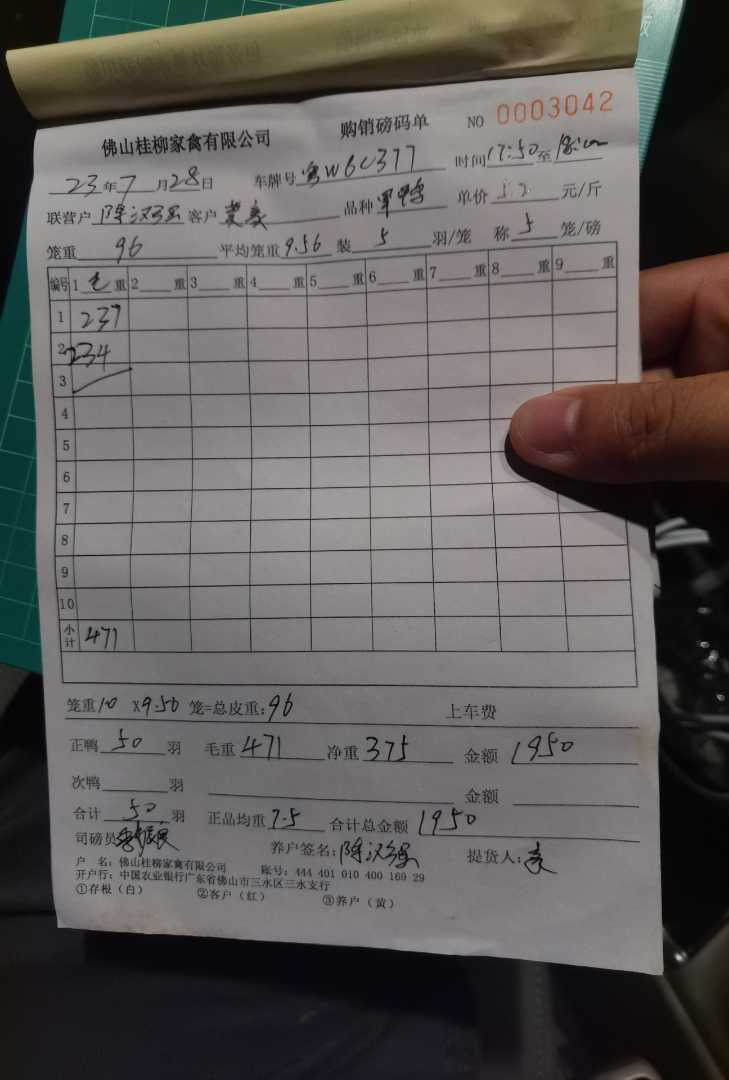 佛山桂柳家禽有限公司 购销磅码单 NO 0003042
23年7月28日 车牌号 粤W6C377 时间 17:50至
联营户 陈汉强 客户 品种 单价 5.2 元/斤
笼重 96 平均笼重 9.56 装 5 羽/笼 称 5 笼/磅
编号 1毛重 2 重 3 重 4 重 5 重 6 重 7 重 8 重 9 重
1 237
2 234
3
4
5
6
7
8
9
10
小计 471
笼重10 X9.56 笼=总皮重:96 上车费
正鸭 50 羽 毛重 471 净重 375 金额 1950
次鸭 羽 金额
合计 50 羽 正品均重 7.5 合计总金额 1950
司磅员 养户签名: 陈汉强 提货人:
户 名: 佛山桂柳家禽有限公司 账号: 444 401 010 400 169 29
开户行: 中国农业银行广东省佛山市三水区三水支行
①存根(白) ②客户(红) ③养户(黄)